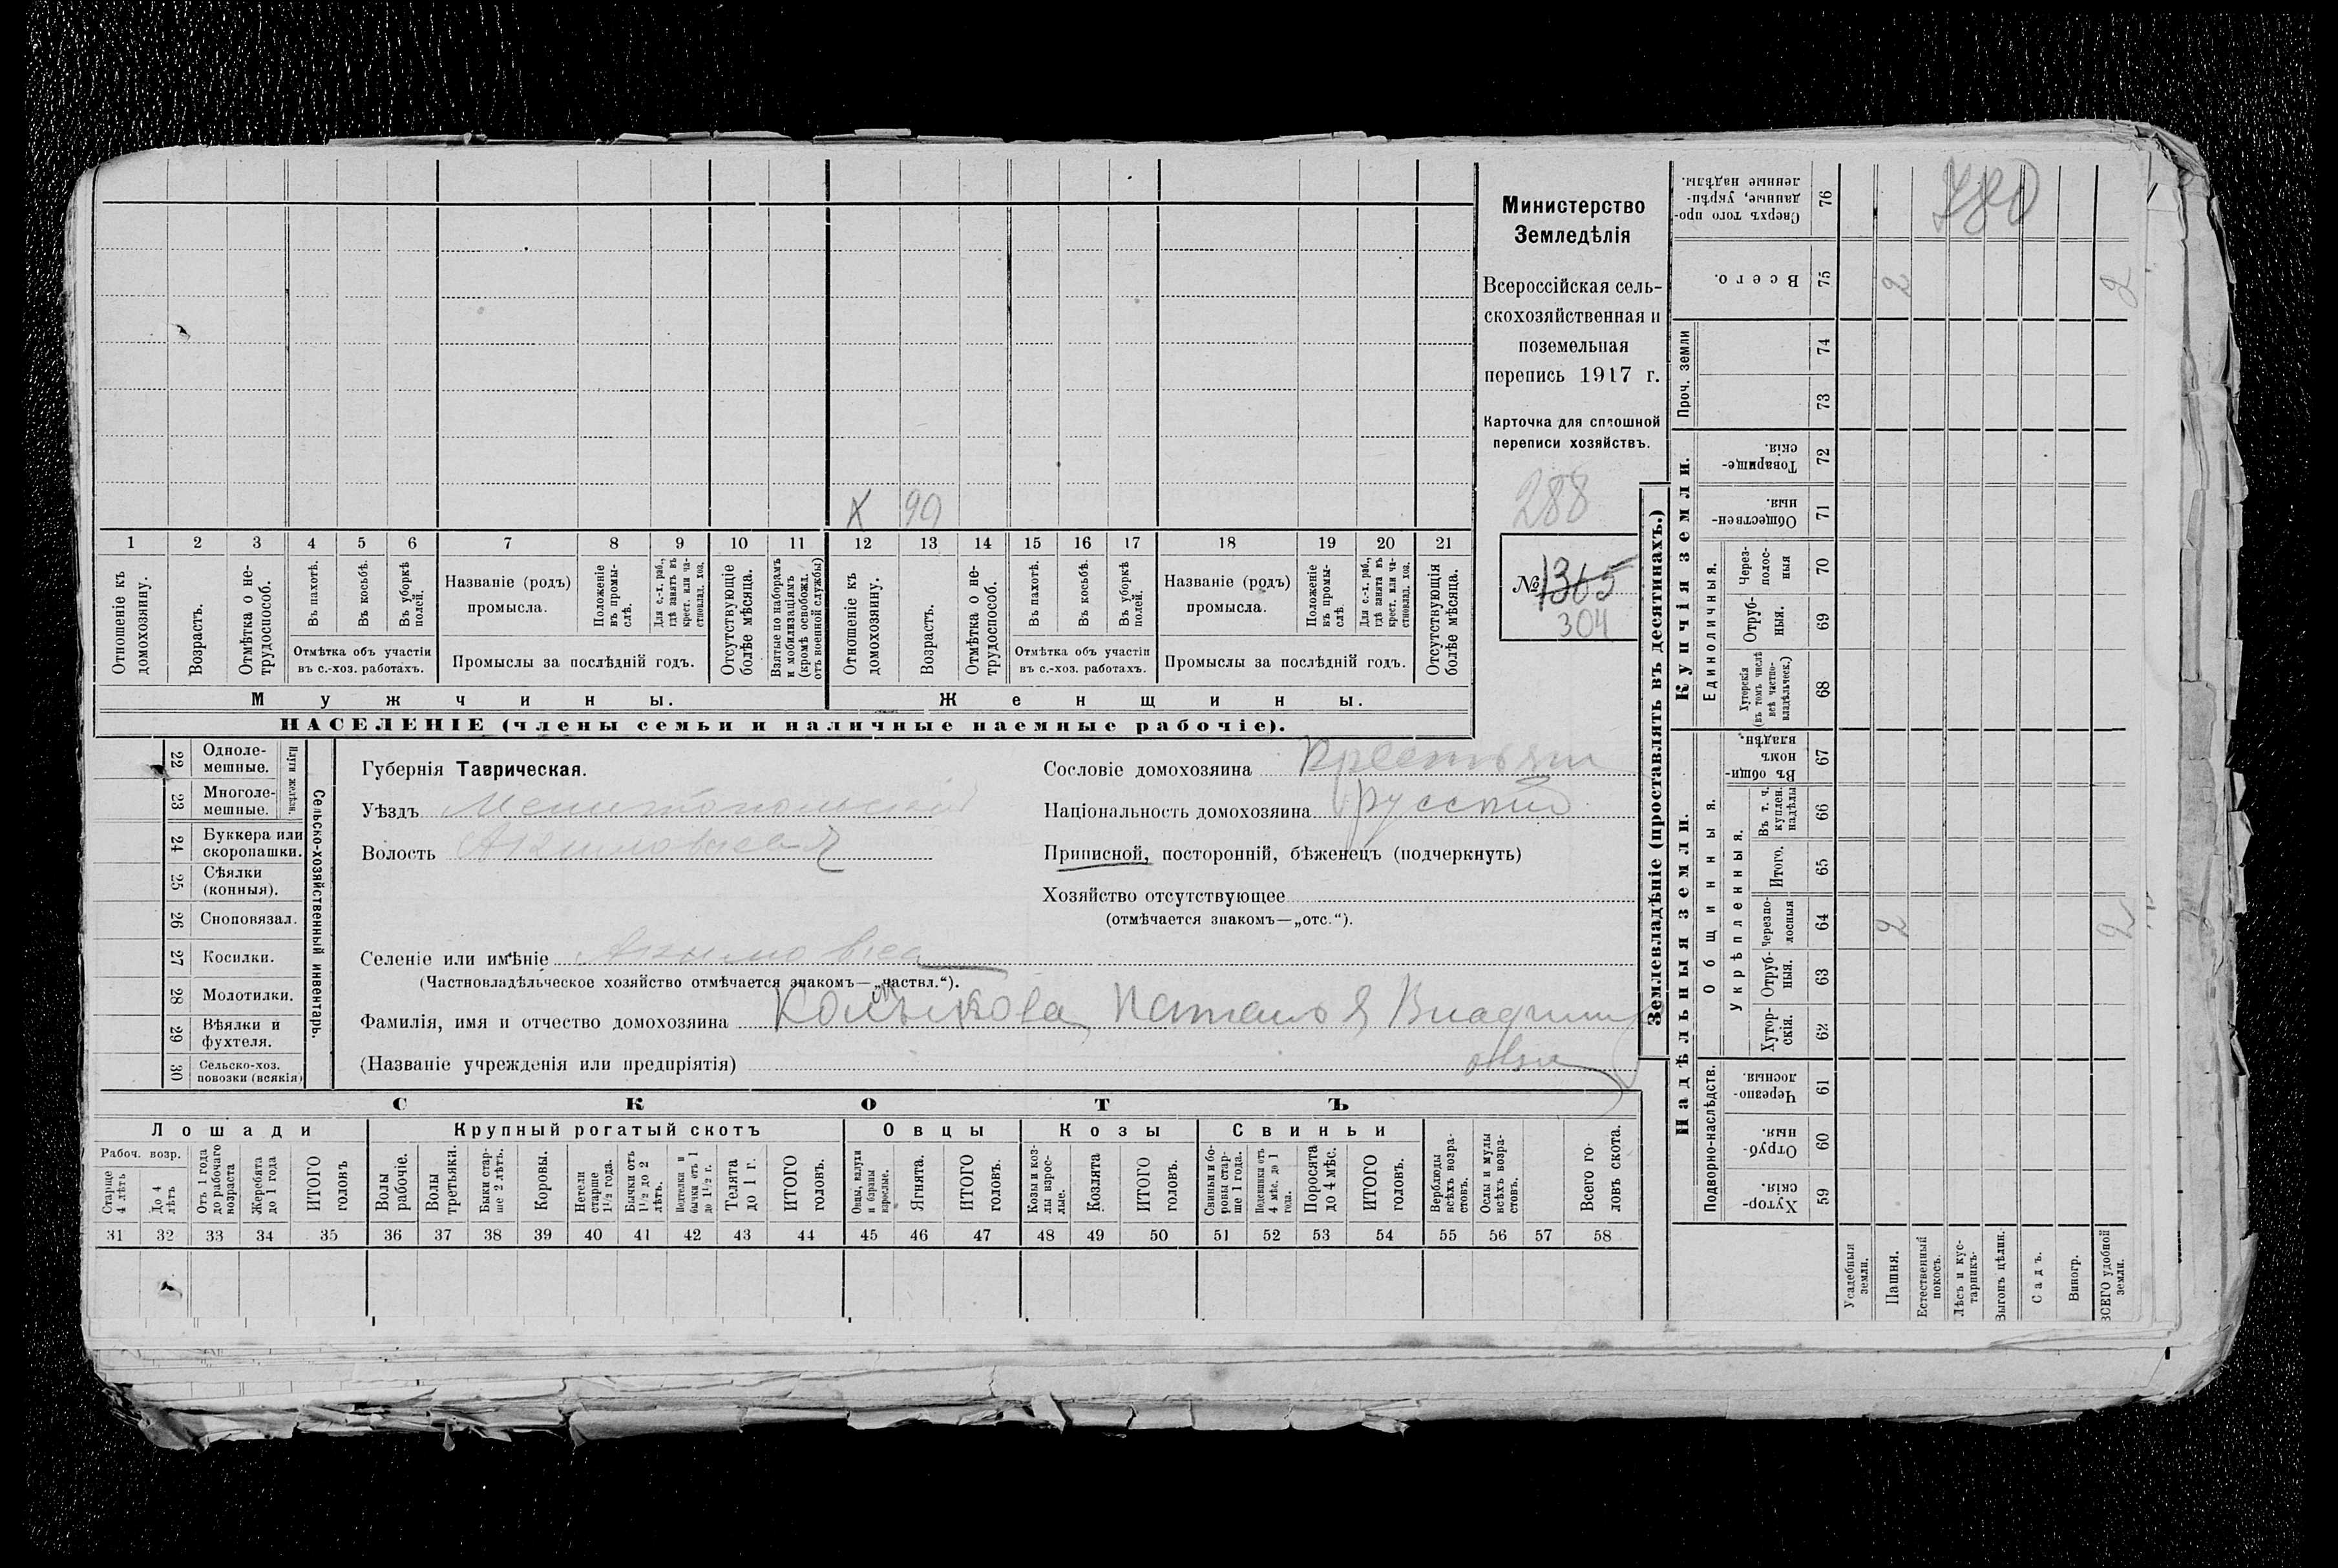 Х 99
1 2 3 4 5 6 7 8 9 10 11 12 13 14 15 16 17 18 19 20 21
Отношеніе къ домохозяину.
Возрастъ.
Отмѣтка о не-трудоспособ.
Въ пахотѣ.
Въ косьбѣ.
Въ уборкѣ полей.
Отмѣтка объ участіи
въ с.-хоз. работахъ.
Названіе (родъ)
промысла.
Положеніе въ промы-слѣ.
Для с.-х. раб., гдѣ занятъ въ крест. или ча-стновлад. хоз.
Промыслы за послѣдній годъ.
Отсутствующіе болѣе мѣсяца.
Взятые по наборамъ и мобилизаціямъ (кромѣ освобожд. отъ военной службы)
Отношеніе къ домохозяину.
Возрастъ.
Отмѣтка о не-трудоспособ.
Въ пахотѣ.
Въ косьбѣ.
Въ уборкѣ полей.
Отмѣтка объ участіи
въ с.-хоз. работахъ.
Названіе (родъ)
промысла.
Положеніе въ промы-слѣ.
Для с.-х. раб., гдѣ занята въ крест. или ча-стновлад. хоз.
Промыслы за послѣдній годъ.
Отсутствующія болѣе мѣсяца.
Мужчины. Женщины.
НАСЕЛЕНІЕ (члены семьи и наличные наемные рабочіе).
Министерство
Земледѣлія
Всероссійская сель-
скохозяйственная и
поземельная
перепись 1917 г.
Карточка для сплошной
переписи хозяйствъ.
288
№ 1305
304
22 Одноле-мешные.
23 Многоле-мешные.
Плуги желѣзн.
24 Буккера или скоропашки.
25 Сѣялки (конныя).
26 Сноповязал.
27 Косилки.
28 Молотилки.
29 Вѣялки и фухтеля.
30 Сельско-хоз. повозки (всякія)
Сельско-хозяйственный инвентарь.
Губернія Таврическая.
Уѣздъ Мелитопольскій
Волость Акимовская
Селеніе или имѣніе Акимовка
(Частновладѣльческое хозяйство отмѣчается знакомъ—„частвл.“).
Фамилія, имя и отчество домохозяина Наталья Владими
(Названіе учрежденія или предпріятія) овна
Сословіе домохозяина Крестьян
Національность домохозяина русская
Приписной, посторонній, бѣженецъ (подчеркнуть)
Хозяйство отсутствующее
(отмѣчается знакомъ—„отс.“).
СКОТЪ
Лошади Крупный рогатый скотъ Овцы Козы Свиньи
Рабоч. возр.
Старше 4 лѣтъ
До 4 лѣтъ
Отъ 1 года до рабочаго возраста
Жеребята до 1 года
ИТОГО головъ
Волы рабочіе.
Волы третьяки.
Быки стар-ше 2 лѣтъ.
Коровы.
Нетели старше 1½ года.
Бычки отъ 1½ до 2 лѣтъ.
Подтелки и бычки отъ 1 до 1½ г.
Телята до 1 г.
ИТОГО головъ.
Овцы, валухи и бараны взрослые.
Ягнята.
ИТОГО головъ.
Козы и коз-лы взрос-лые.
Козлята
ИТОГО головъ.
Свиньи и бо-ровы стар-ше 1 года.
Подсвинки отъ 4 мѣс. до 1 года.
Поросята до 4 мѣс.
ИТОГО головъ.
Верблюды всѣхъ возра-стовъ.
Ослы и мулы всѣхъ возра-стовъ.
Всего го-ловъ скота.
31 32 33 34 35 36 37 38 39 40 41 42 43 44 45 46 47 48 49 50 51 52 53 54 55 56 57 58
Землевладѣніе (проставлять въ десятинахъ.)
780
Сверхъ того про-данные, укрѣп-ленные надѣлы. 76
Всего. 75 2 2
Проч. земли 74
73
Купчія земли.
Товарище-скія. 72
Обществен-ныя. 71
Единоличныя.
Через-полос-ныя 70
Отруб-ныя. 69
Хуторскія (въ томъ числѣ всѣ частно-владѣльческ.) 68
Надѣльныя земли.
Общинныя.
Въ общи-номъ владѣн. 67
Укрѣпленныя.
Въ т. ч. куплен. надѣлы 66
Итого. 65
Черезпо-лосныя 64 2 2
Отруб-ныя. 63
Хутор-скія. 62
Подворно-наслѣдств.
Черезпо-лосныя. 61
Отруб-ныя. 60
Хутор-скія. 59
Усадебныя земли.
Пашня.
Естественный покосъ.
Лѣсъ и кус-тарникъ.
Выгонъ цѣлин.
Садъ.
Виногр.
ВСЕГО удобной земли.